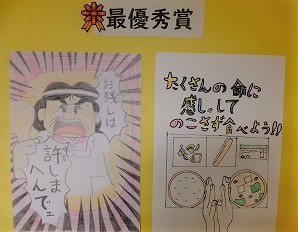 最優秀賞
お残しは
許しま
へんでェ
たくさんの命に
感しゃして
のこさず食べよう!!